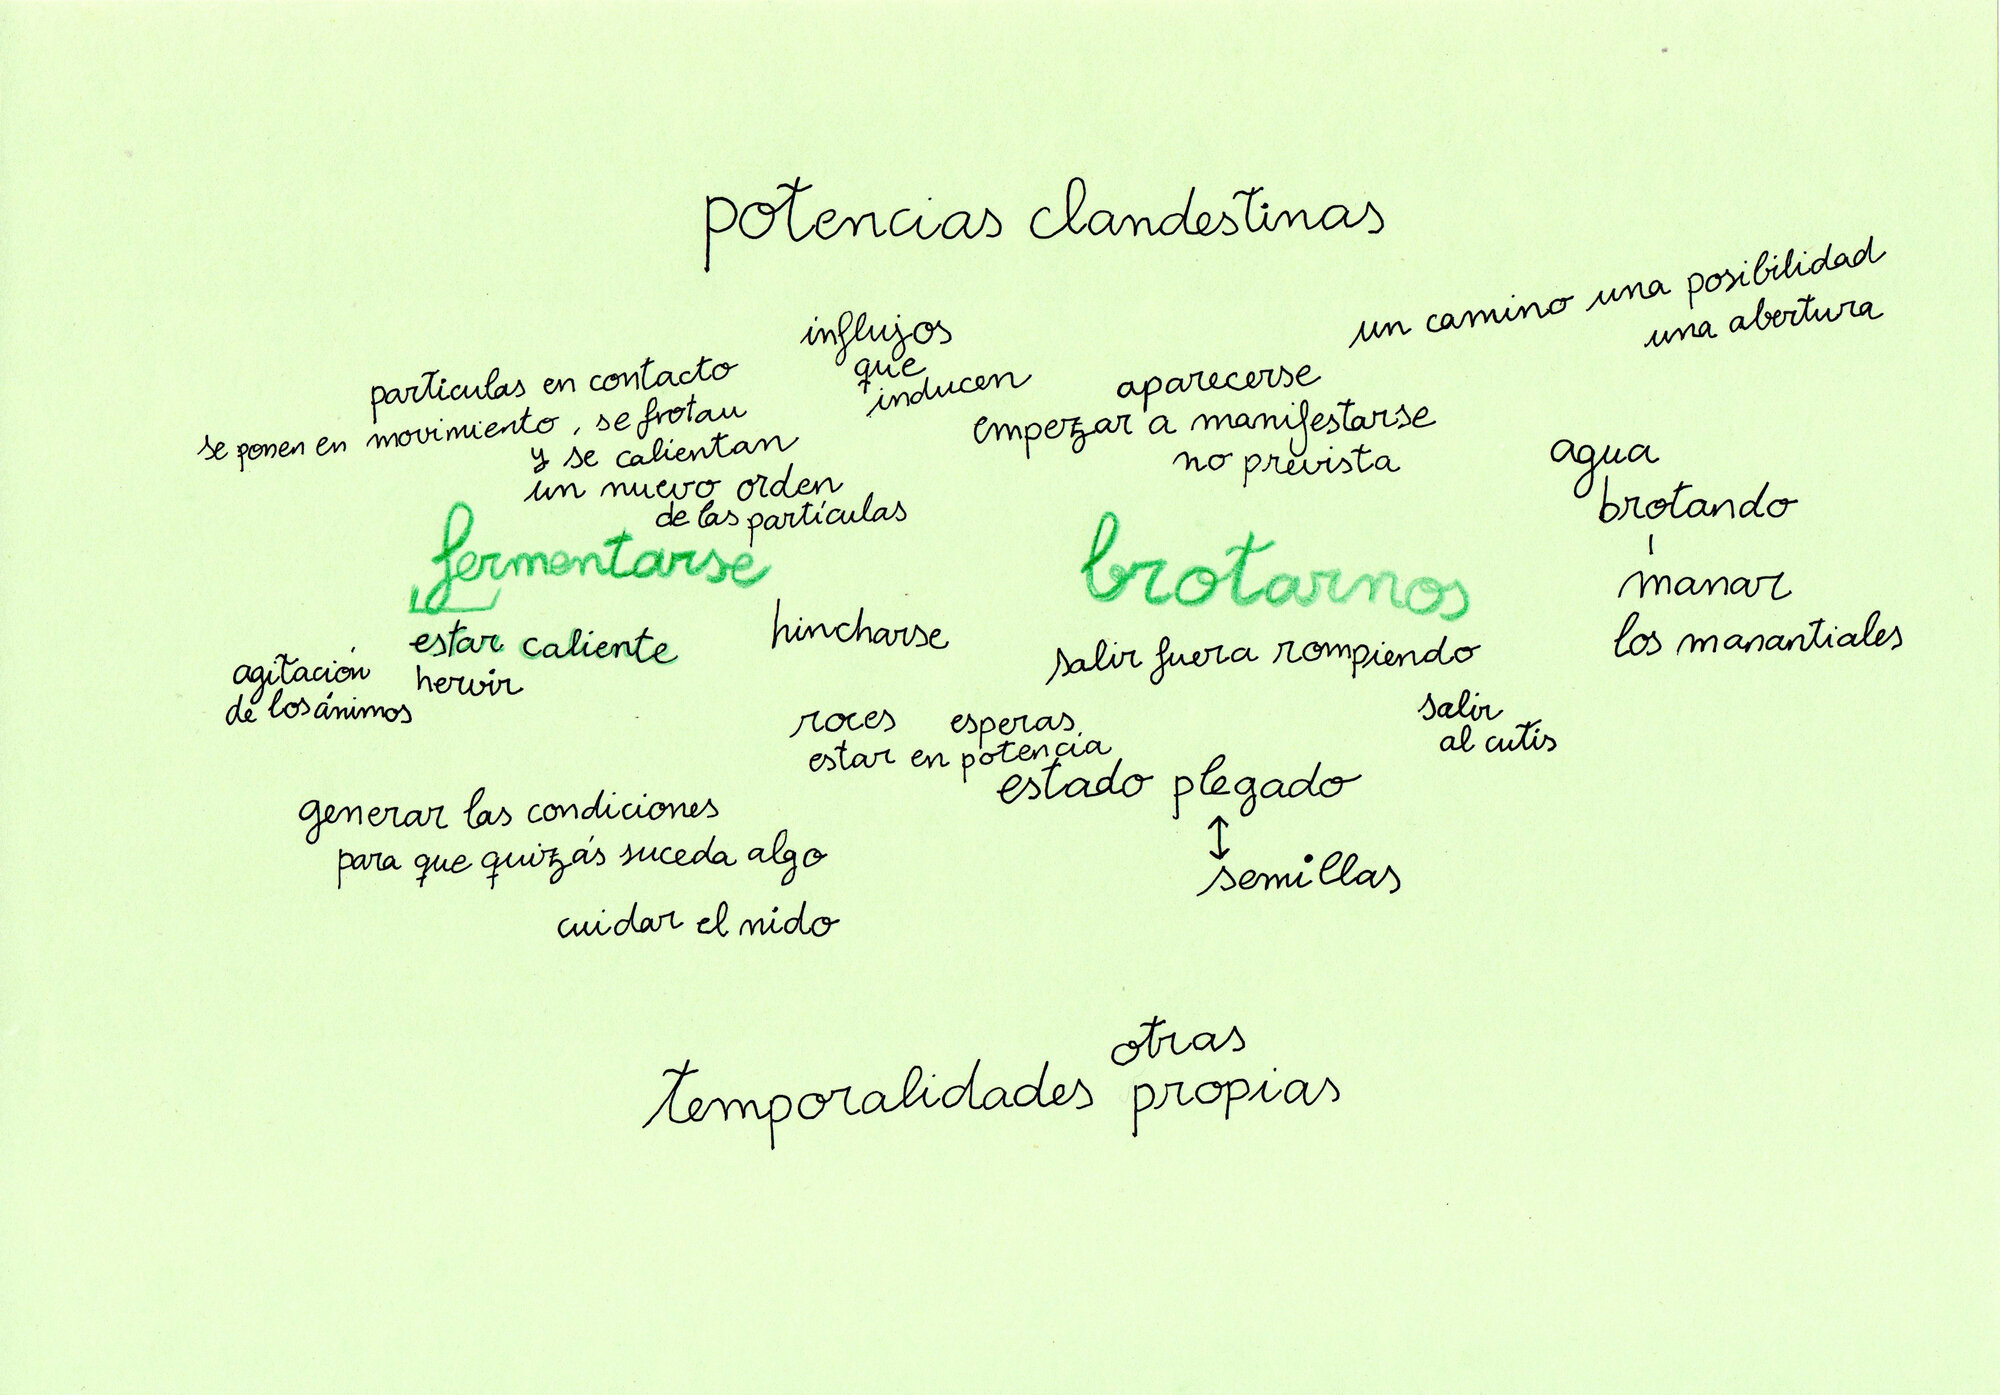 potencias clandestinas
un camino una posibilidad
una abertura
influjos
que
inducen
particulas en contacto
se ponen en movimiento, se frotan
y se calientan
un nuevo orden
de las partículas
aparecerse
empezar a manifestarse
no prevista
agua
brotando
manar
los manantiales
fermentarse
estar caliente
hervir
agitación
de los ánimos
hincharse
brotarnos
salir fuera rompiendo
salir
al cutis
roces esperas
estar en potencia
estado plegado
↕
semillas
generar las condiciones
para que quizás suceda algo
cuidar el nido
otras
temporalidades propias